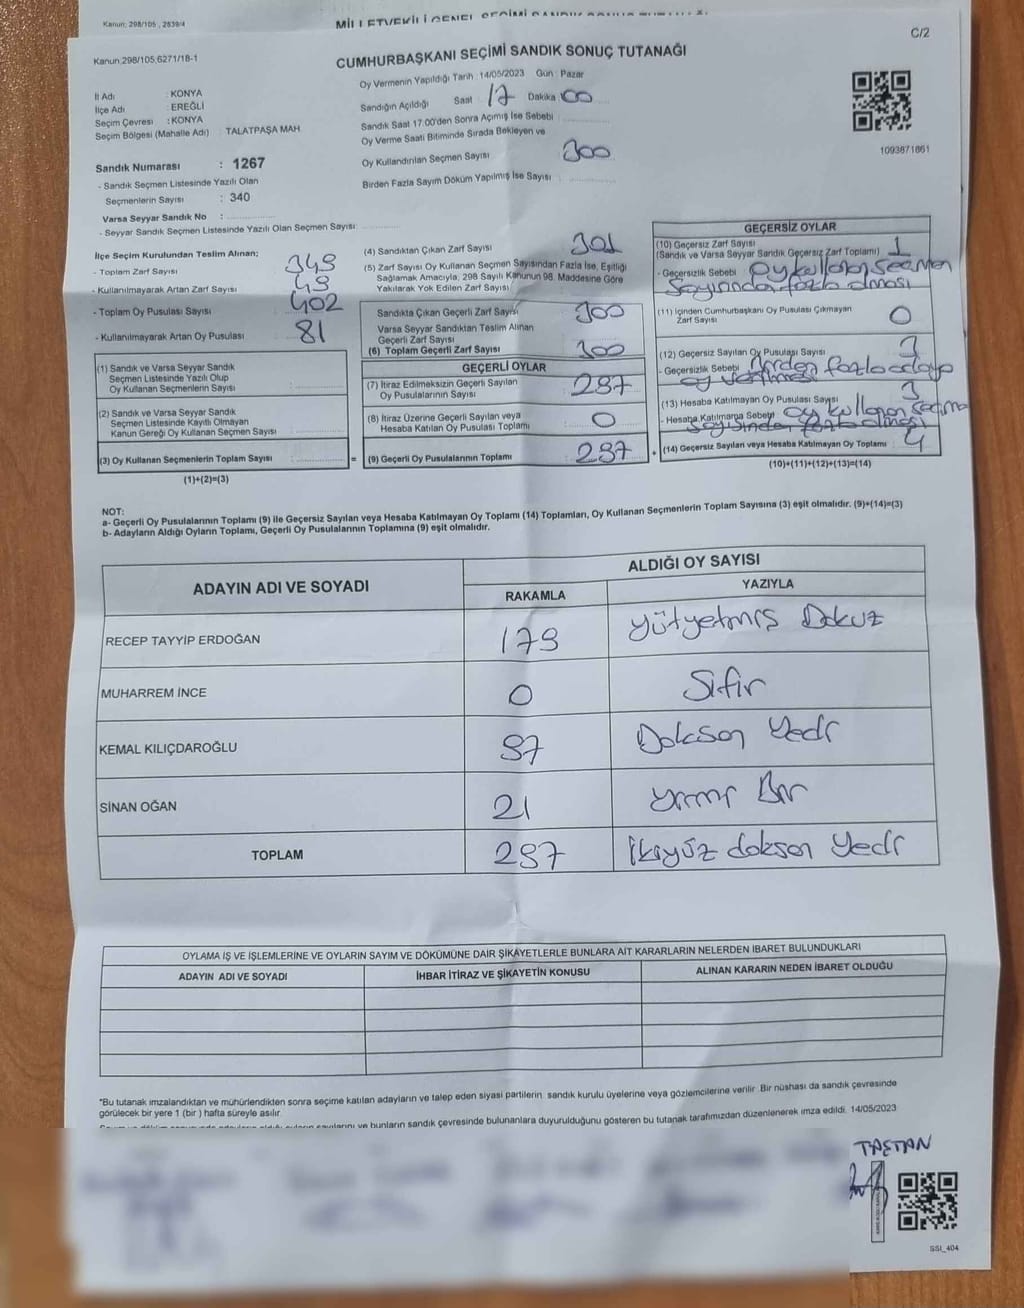 Kanun: 298/105, 2839/4
C/2
Kanun:298/105,6271/18-1
CUMHURBAŞKANI SEÇİMİ SANDIK SONUÇ TUTANAĞI
Oy Vermenin Yapıldığı Tarih :14/05/2023 Gün : Pazar
İl Adı : KONYA
İlçe Adı : EREĞLİ
Seçim Çevresi : KONYA
Seçim Bölgesi (Mahalle Adı) : TALATPAŞA MAH.
Sandığın Açıldığı Saat 17 Dakika 00
Sandık Saat 17.00'den Sonra Açmış İse Sebebi
Oy Verme Saati Bitiminde Sırada Bekleyen ve
Oy Kullandırılan Seçmen Sayısı 300
Birden Fazla Sayım Döküm Yapılmış İse Sayısı
1093871861
Sandık Numarası : 1267
- Sandık Seçmen Listesinde Yazılı Olan
Seçmenlerin Sayısı : 340
Varsa Seyyar Sandık No :
- Seyyar Sandık Seçmen Listesinde Yazılı Olan Seçmen Sayısı:
İlçe Seçim Kurulundan Teslim Alınan;
- Toplam Zarf Sayısı 349
- Kullanılmayarak Artan Zarf Sayısı 49
- Toplam Oy Pusulası Sayısı 402
- Kullanılmayarak Artan Oy Pusulası 81
(1) Sandık ve Varsa Seyyar Sandık
Seçmen Listesinde Yazılı Olup
Oy Kullanan Seçmenlerin Sayısı
(2) Sandık ve Varsa Seyyar Sandık
Seçmen Listesinde Kayıtlı Olmayan
Kanun Gereği Oy Kullanan Seçmen Sayısı
(3) Oy Kullanan Seçmenlerin Toplam Sayısı
(1)+(2)=(3)
=
(4) Sandıktan Çıkan Zarf Sayısı 301
(5) Zarf Sayısı Oy Kullanan Seçmen Sayısından Fazla İse, Eşitliği
Sağlamak Amacıyla, 298 Sayılı Kanunun 98. Maddesine Göre
Yakılarak Yok Edilen Zarf Sayısı
Sandıkta Çıkan Geçerli Zarf Sayısı 300
Varsa Seyyar Sandıktan Teslim Alınan
Geçerli Zarf Sayısı
(6) Toplam Geçerli Zarf Sayısı 300
GEÇERLİ OYLAR
(7) İtiraz Edilmeksizin Geçerli Sayılan
Oy Pusulalarının Sayısı 297
(8) İtiraz Üzerine Geçerli Sayılan veya
Hesaba Katılan Oy Pusulası Toplamı 0
(9) Geçerli Oy Pusulalarının Toplamı 297
+
GEÇERSİZ OYLAR
(10) Geçersiz Zarf Sayısı 1
(Sandık ve Varsa Seyyar Sandık Geçersiz Zarf Toplamı)
- Geçersizlik Sebebi Oy kullanan seçmen
Sayısından fazla olması
(11) İçinden Cumhurbaşkanı Oy Pusulası Çıkmayan
Zarf Sayısı 0
(12) Geçersiz Sayılan Oy Pusulası Sayısı 3
- Geçersizlik Sebebi Birden fazla adaya
oy verilmesi
(13) Hesaba Katılmayan Oy Pusulası Sayısı 3
- Hesaba Katılmama Sebebi oy kullanan seçmen
sayısından fazla olması
(14) Geçersiz Sayılan veya Hesaba Katılmayan Oy Toplamı 4
(10)+(11)+(12)+(13)=(14)
NOT:
a- Geçerli Oy Pusulalarının Toplamı (9) ile Geçersiz Sayılan veya Hesaba Katılmayan Oy Toplamı (14) Toplamları, Oy Kullanan Seçmenlerin Toplam Sayısına (3) eşit olmalıdır. (9)+(14)=(3)
b- Adayların Aldığı Oyların Toplamı, Geçerli Oy Pusulalarının Toplamına (9) eşit olmalıdır.
ADAYIN ADI VE SOYADI ALDIĞI OY SAYISI
RAKAMLA YAZIYLA
RECEP TAYYİP ERDOĞAN 179 Yüzyetmiş Dokuz
MUHARREM İNCE 0 Sıfır
KEMAL KILIÇDAROĞLU 97 Doksan Yedi
SİNAN OĞAN 21 Yirmi Bir
TOPLAM 297 İkiyüz doksan Yedi
OYLAMA İŞ VE İŞLEMLERİNE VE OYLARIN SAYIM VE DÖKÜMÜNE DAİR ŞİKAYETLERLE BUNLARA AİT KARARLARIN NELERDEN İBARET BULUNDUKLARI
ADAYIN ADI VE SOYADI İHBAR İTİRAZ VE ŞİKAYETİN KONUSU ALINAN KARARIN NEDEN İBARET OLDUĞU
*Bu tutanak imzalandıktan ve mühürlendikten sonra seçime katılan adayların ve talep eden siyasi partilerin sandık kurulu üyelerine veya gözlemcilerine verilir. Bir nüshası da sandık çevresinde
görülecek bir yere 1 (bir) hafta süreyle asılır.
ve bunların sandık çevresinde bulunanlara duyurulduğunu gösteren bu tutanak tarafımızdan düzenlenerek imza edildi. 14/05/2023
TAŞTAN
SSI_404